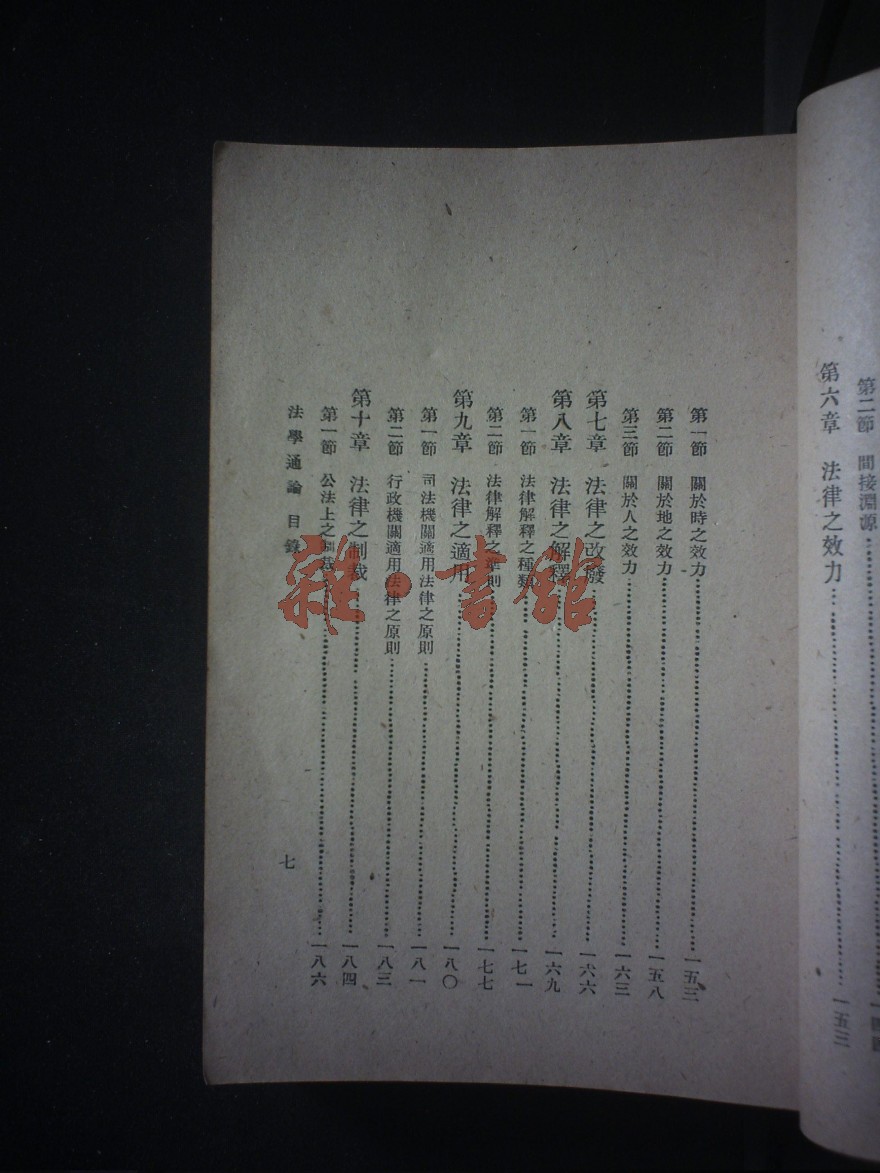 第二節　間接淵源
第六章　法律之效力……一五三
第一節　關於時之效力……一五三
第二節　關於地之效力……一五八
第三節　關於人之效力……一六三
第七章　法律之改廢……一六六
第八章　法律之解釋……一六九
第一節　法律解釋之種類……一七一
第二節　法律解釋之準則……一七七
第九章　法律之適用……一八〇
第一節　司法機關適用法律之原則……一八一
第二節　行政機關適用法律之原則……一八三
第十章　法律之制裁……一八四
第一節　公法上之制裁……一八六
法學通論　目錄
七
雜·書館